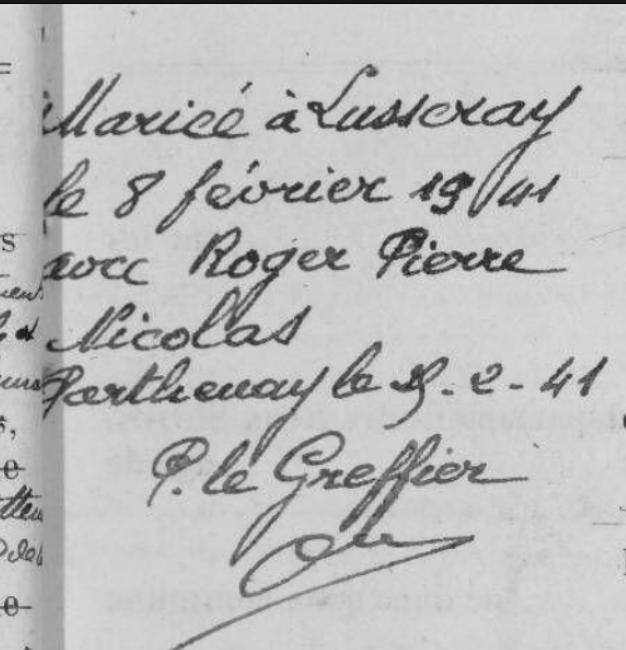 Mariée à Lusseray
le 8 février 1941
avec Roger Pierre
Nicolas
Parthenay le 9-2-41
P. le Greffier